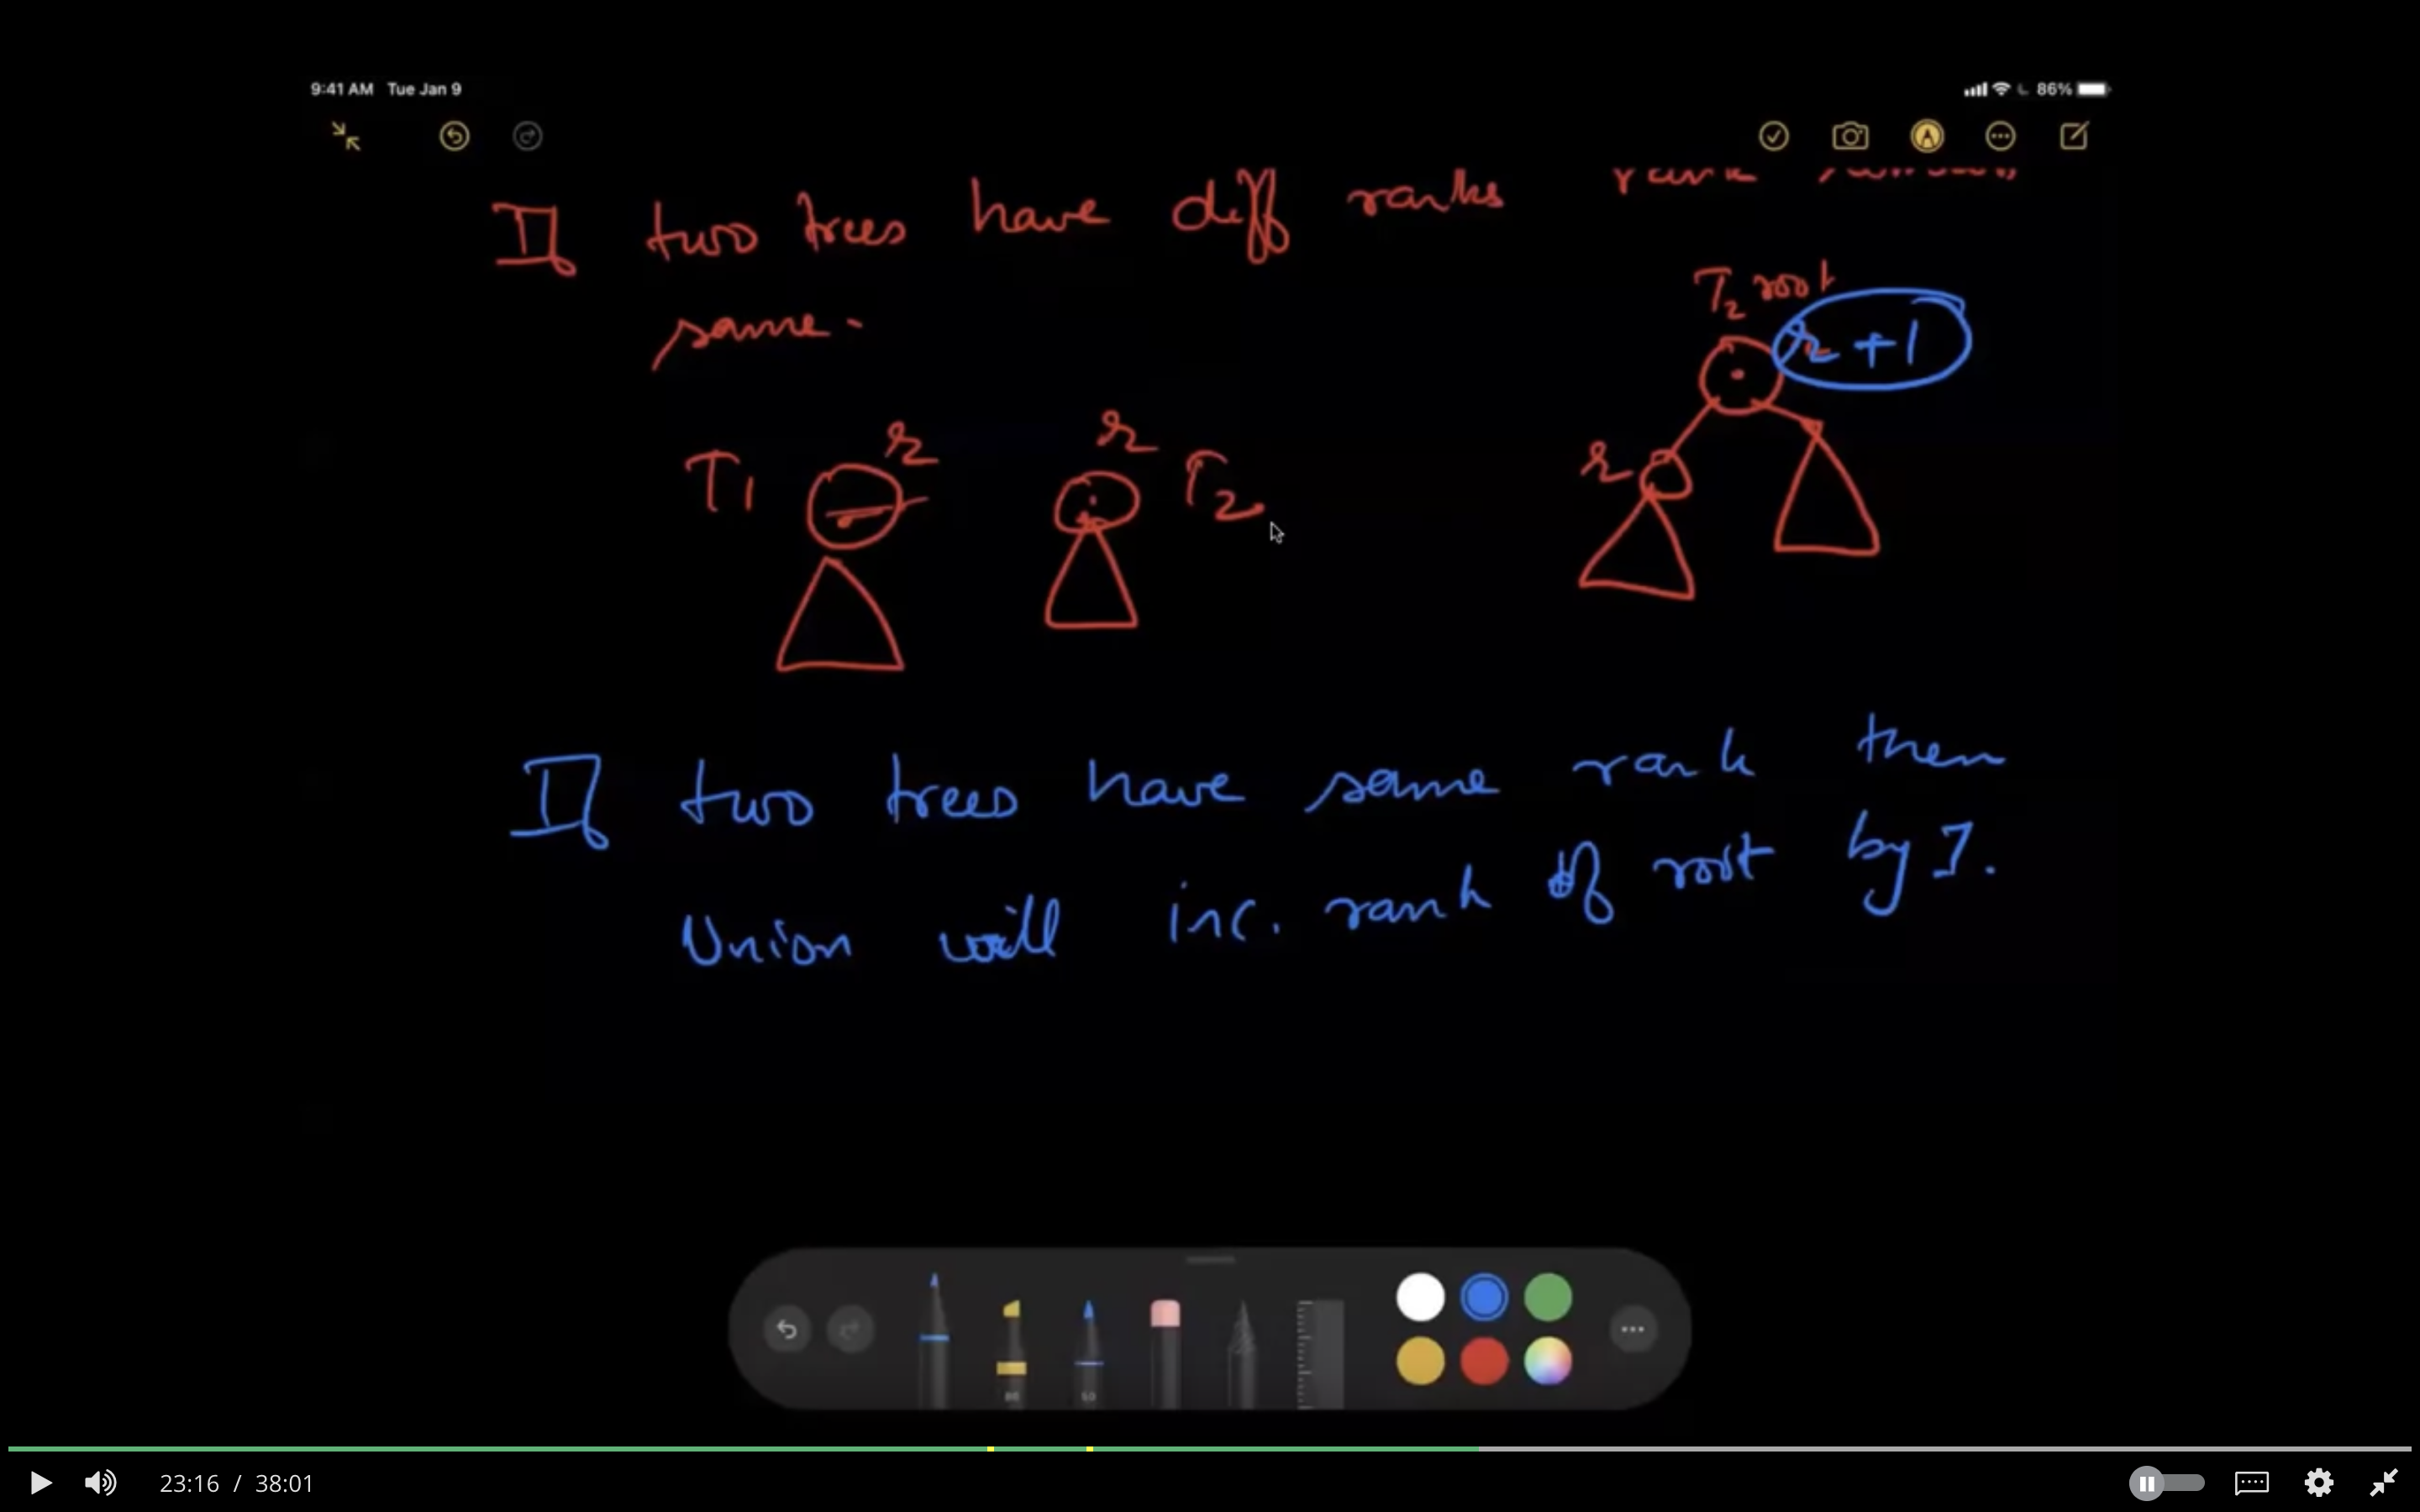 9:41 AM Tue Jan 9
86%
If two trees have diff ranks rank
same.
T2 root
r+1
r
T1 r
r T2
If two trees have same rank then
Union will inc. rank of root by 1.
80
50
23:16 / 38:01